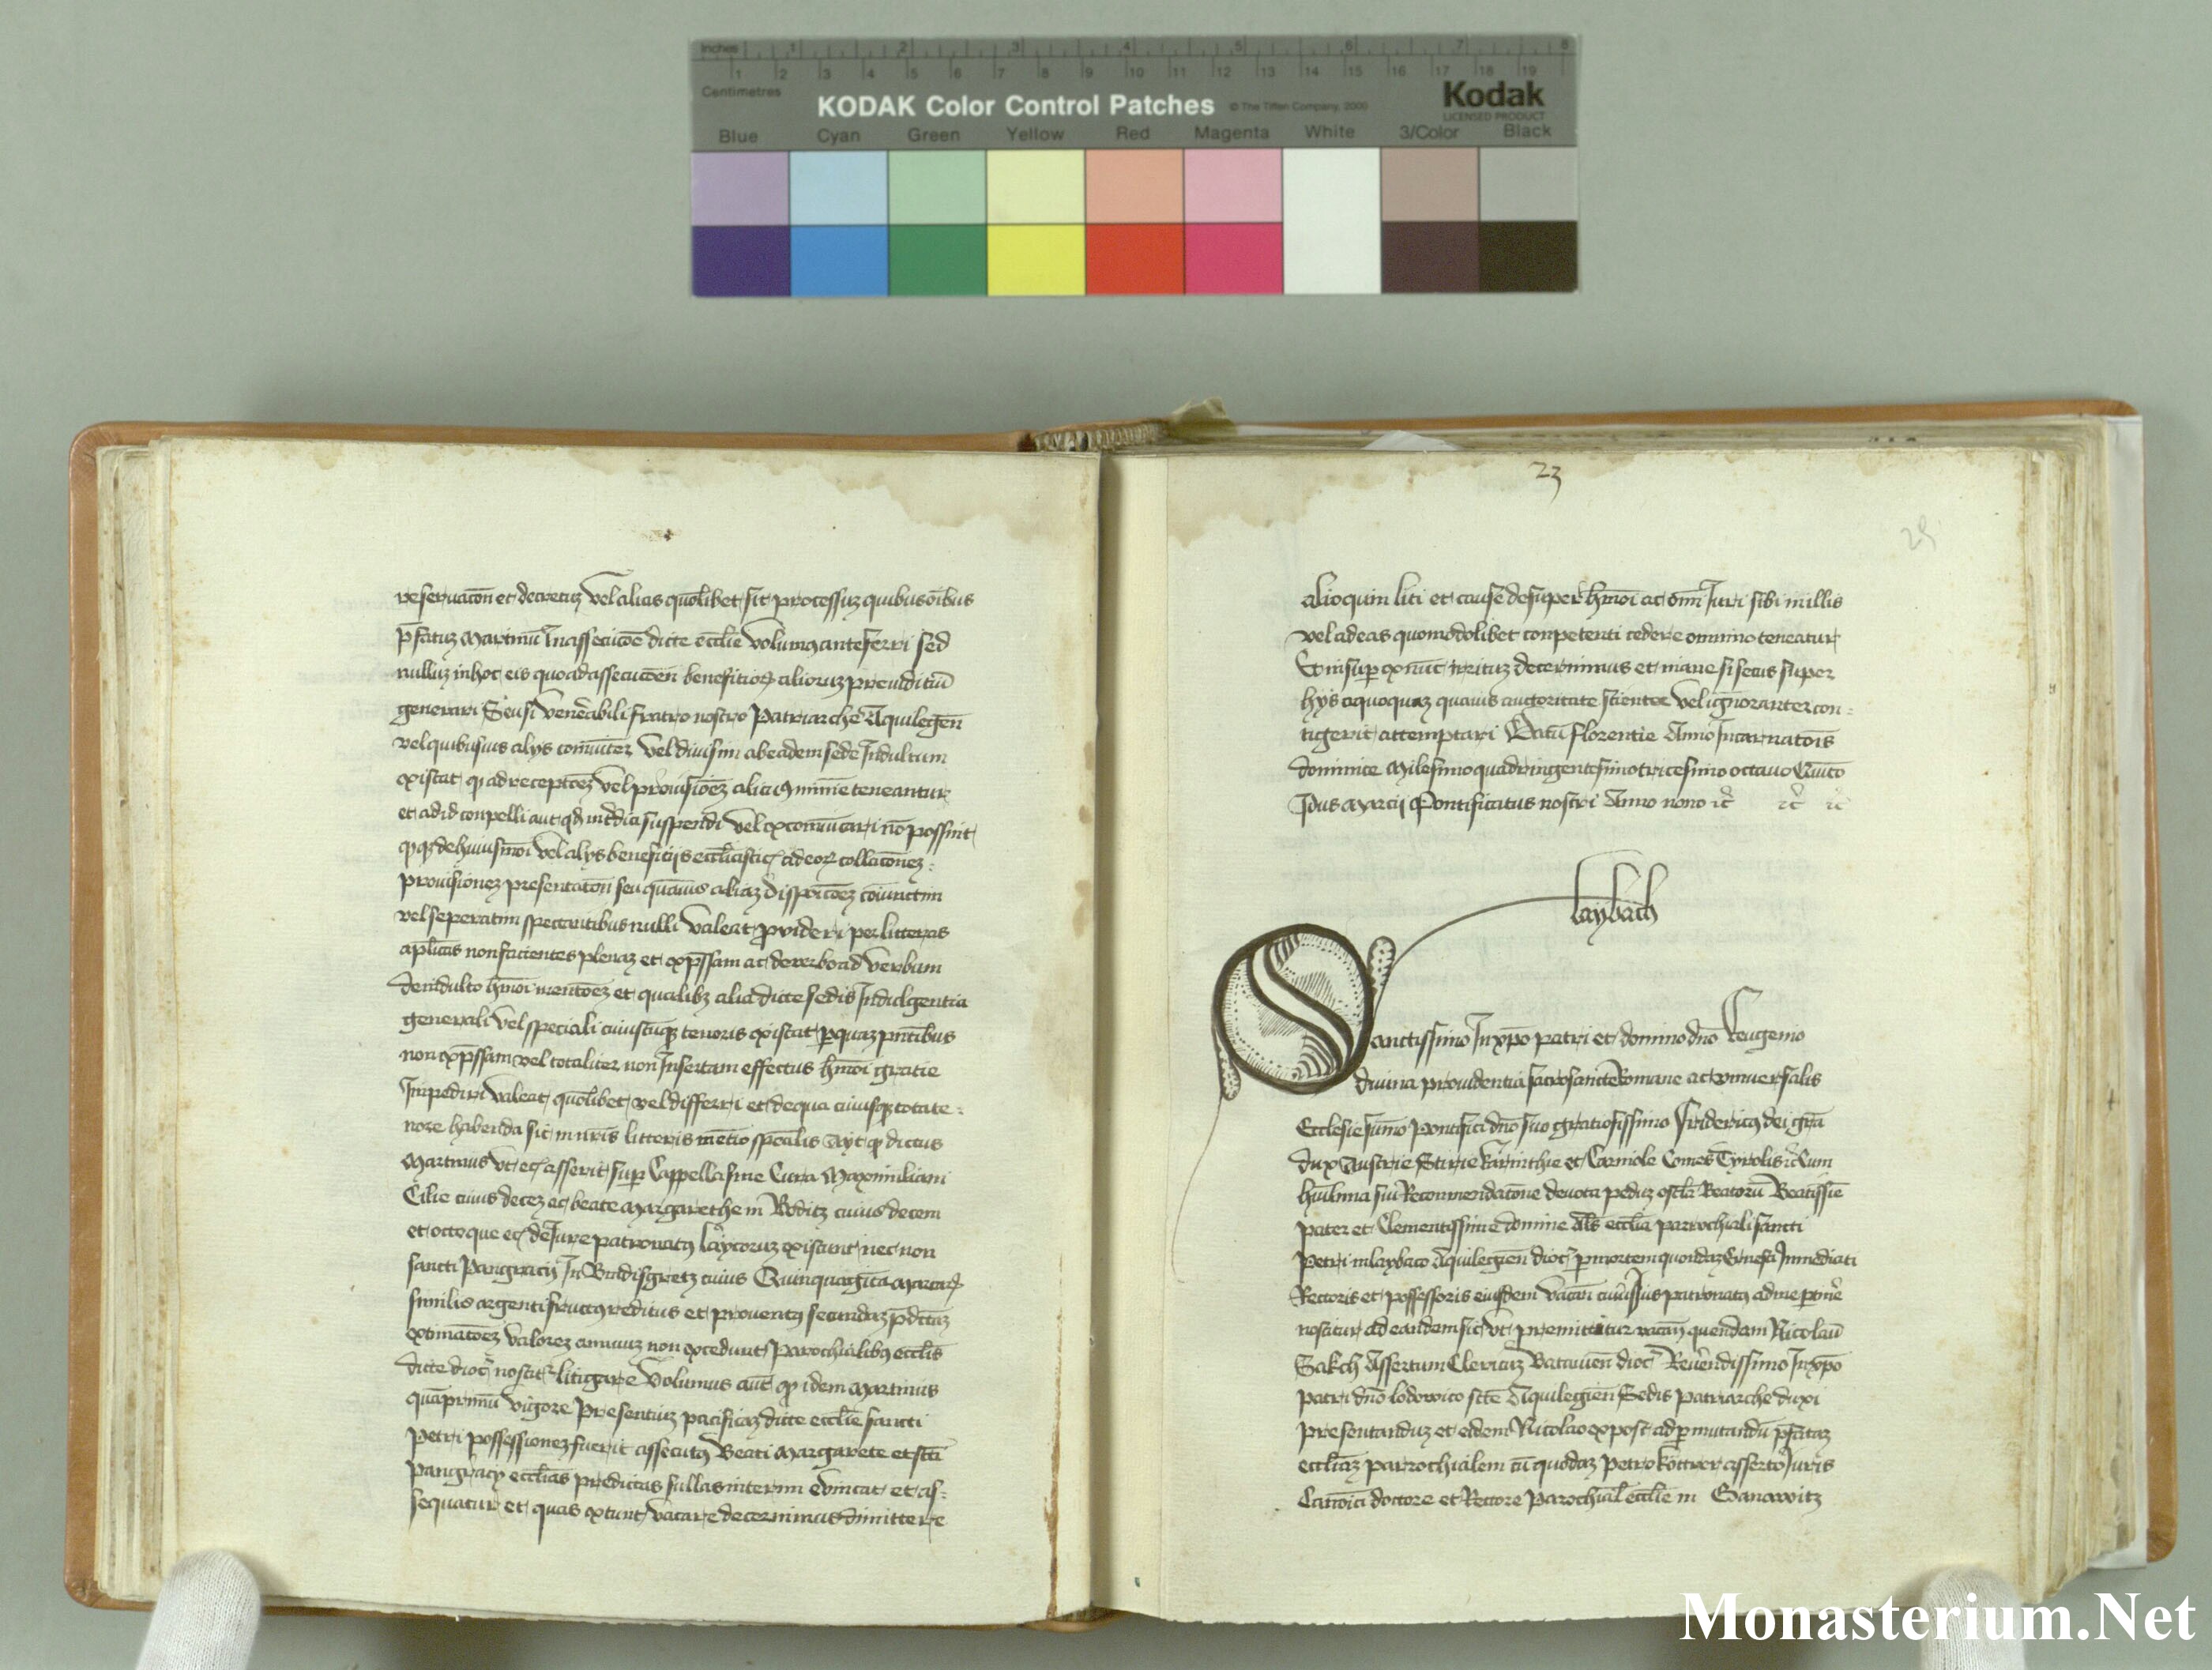 Inches 1 2 3 4 5 6 7 8
1 2 3 4 5 6 7 8 9 10 11 12 13 14 15 16 17 18 19
Centimetres
KODAK Color Control Patches © The Tiffen Company, 2000 Kodak
LICENSED PRODUCT
Blue Cyan Green Yellow Red Magenta White 3/Color Black
reseruacōn et decretuz vel alias quol̄ibet sit processuz quibus oībus
p̄fatuz Martinū In assecucōe dicte eccl̄ie volumus anteferri sed
nulluz in hoc eis quoad assecucōem beneficioꝝ aliorum preiudiciū
generari Seu si venerabili fratro nostro Patriarche Aquilegen̄
vel quibusuis alys comūiter vel diuisim ab eadem sede Indultum
existat qd ad receptōez vel prouisiōez alicuiꝰ minīe teneantur
et ad id conpelli aut qd int̄dici suspendi vel excomūicari nō possint
qd qꝫ de huiusmōi vel alys beneficijs eccl̄iasticꝭ ad eoꝝ collacōnez
prouisionez presentatōn seu quāuis aliaz disp̄oicōez cōiunctim
vel seperatim spectantibus nulli valeat prouideri per litteras
ap̄licas non facientes plenaz et exp̄ssam ac de verbo ad verbum
de indulto hmōi mentōez et qualibꝫ alia dicte sedis Indulgentia
generali vel speciali cuiuscūqꝫ tenoris existat p̱ quaz pn̄tibus
non exp̄ssam vel totaliter non Insertam effectus hmōi gratie
Impediri valeat quol̄ibet vel differri et de qua cuiusqꝫ toto te
nore habenda sit in nr̄is litteris mētio spēcalis Aut qd dictus
Martinus vt ec̄ asserit sup̱ Cappella sine Cura Maximiliani
Cilie cuius decez ac beate Margarethe in Roditz cuius decem
et octo que ec̄ de Iure patronatꝰ laycoruz existunt nec non
sancti Pangracij In Windisgretz cuius Quinquagīta Marcaꝝ
similis argenti fructꝰ redditus et prouentꝰ secundaz p̄dc̄taz
extimatōez valorez annuuz non excedunt Parochialibꝰ eccl̄is
dicte dioc̄ noscitur litigare Volumus aut̄ qd idem Martinus
quāprimū vigore Presentiuz pacificaz dicte eccl̄ie sancti
Petri possessionez fuerit assecutꝰ Beati Margarete et scti
Pangracy eccl̄ias predictas si illas interim euincat et as
sequatur et quas extunc vacare decernimus dimittere
23
25
Alioquin liti et cause desuper hmōi ac omī Iuri sibi in illis
vel ad eas quomodolibet conpetenti cedere omnino teneatur
Et insup̱ ex nūc irrituz decernimus et inane si secus super
hys a quoquaz quauis auctoritate scienter vel ignoranter con
tigerit attemptari Datū Florentie Anno Incarnatōis
dominice Milesimo quadringentesimo tricesimo octauo Quīto
Idus Marcij Pontificatus nostri Anno nono rc̄ rc̄ rc̄
laybach
Sanctissimo In xp̄o patri et domino dn̄o Eeugenio
diuina prouidentia sacrosancte Romane ac vniuersalis
Ecclesie sūmo pontifici dn̄o suo gratiosissimo Fridericꝰ dei grā
dux Austrie Stirie karinthie et Carniole Comes Tyrolis rc̄ Cum
huil̄ima sui Recommendatōne deuota peduz oscl̄a Beatoru Beatissīe
pater et Clementissime domine Als̄ eccl̄ia parrochiali sancti
Petri in laybaco Aquilegien̄ dioc̄ p̱ mortem quondaz Ernesti Inmediati
Rectoris et possessoris eiusdem vacan̄ cuiꝰ Ius patronatꝰ ad me ptin̄e
noscitur ad eandem sic vt premittitur vacan̄ quendam Nicolaū
Gakch Assertum Clericuz Batauien̄ dioc̄ Reuendissimo In xp̄o
patri dn̄o lodowico scte Aquilegien̄ Sedis patriarche duxi
presentanduz et eidem Nicolao expost ad p̱mutandū p̄fataz
eccl̄iaz parrochialem cū quodaz Petro kottrer asserto Iuris
Canōici doctore et Rectore Parochial̄ eccl̄ie in Ganowitz
Monasterium.Net